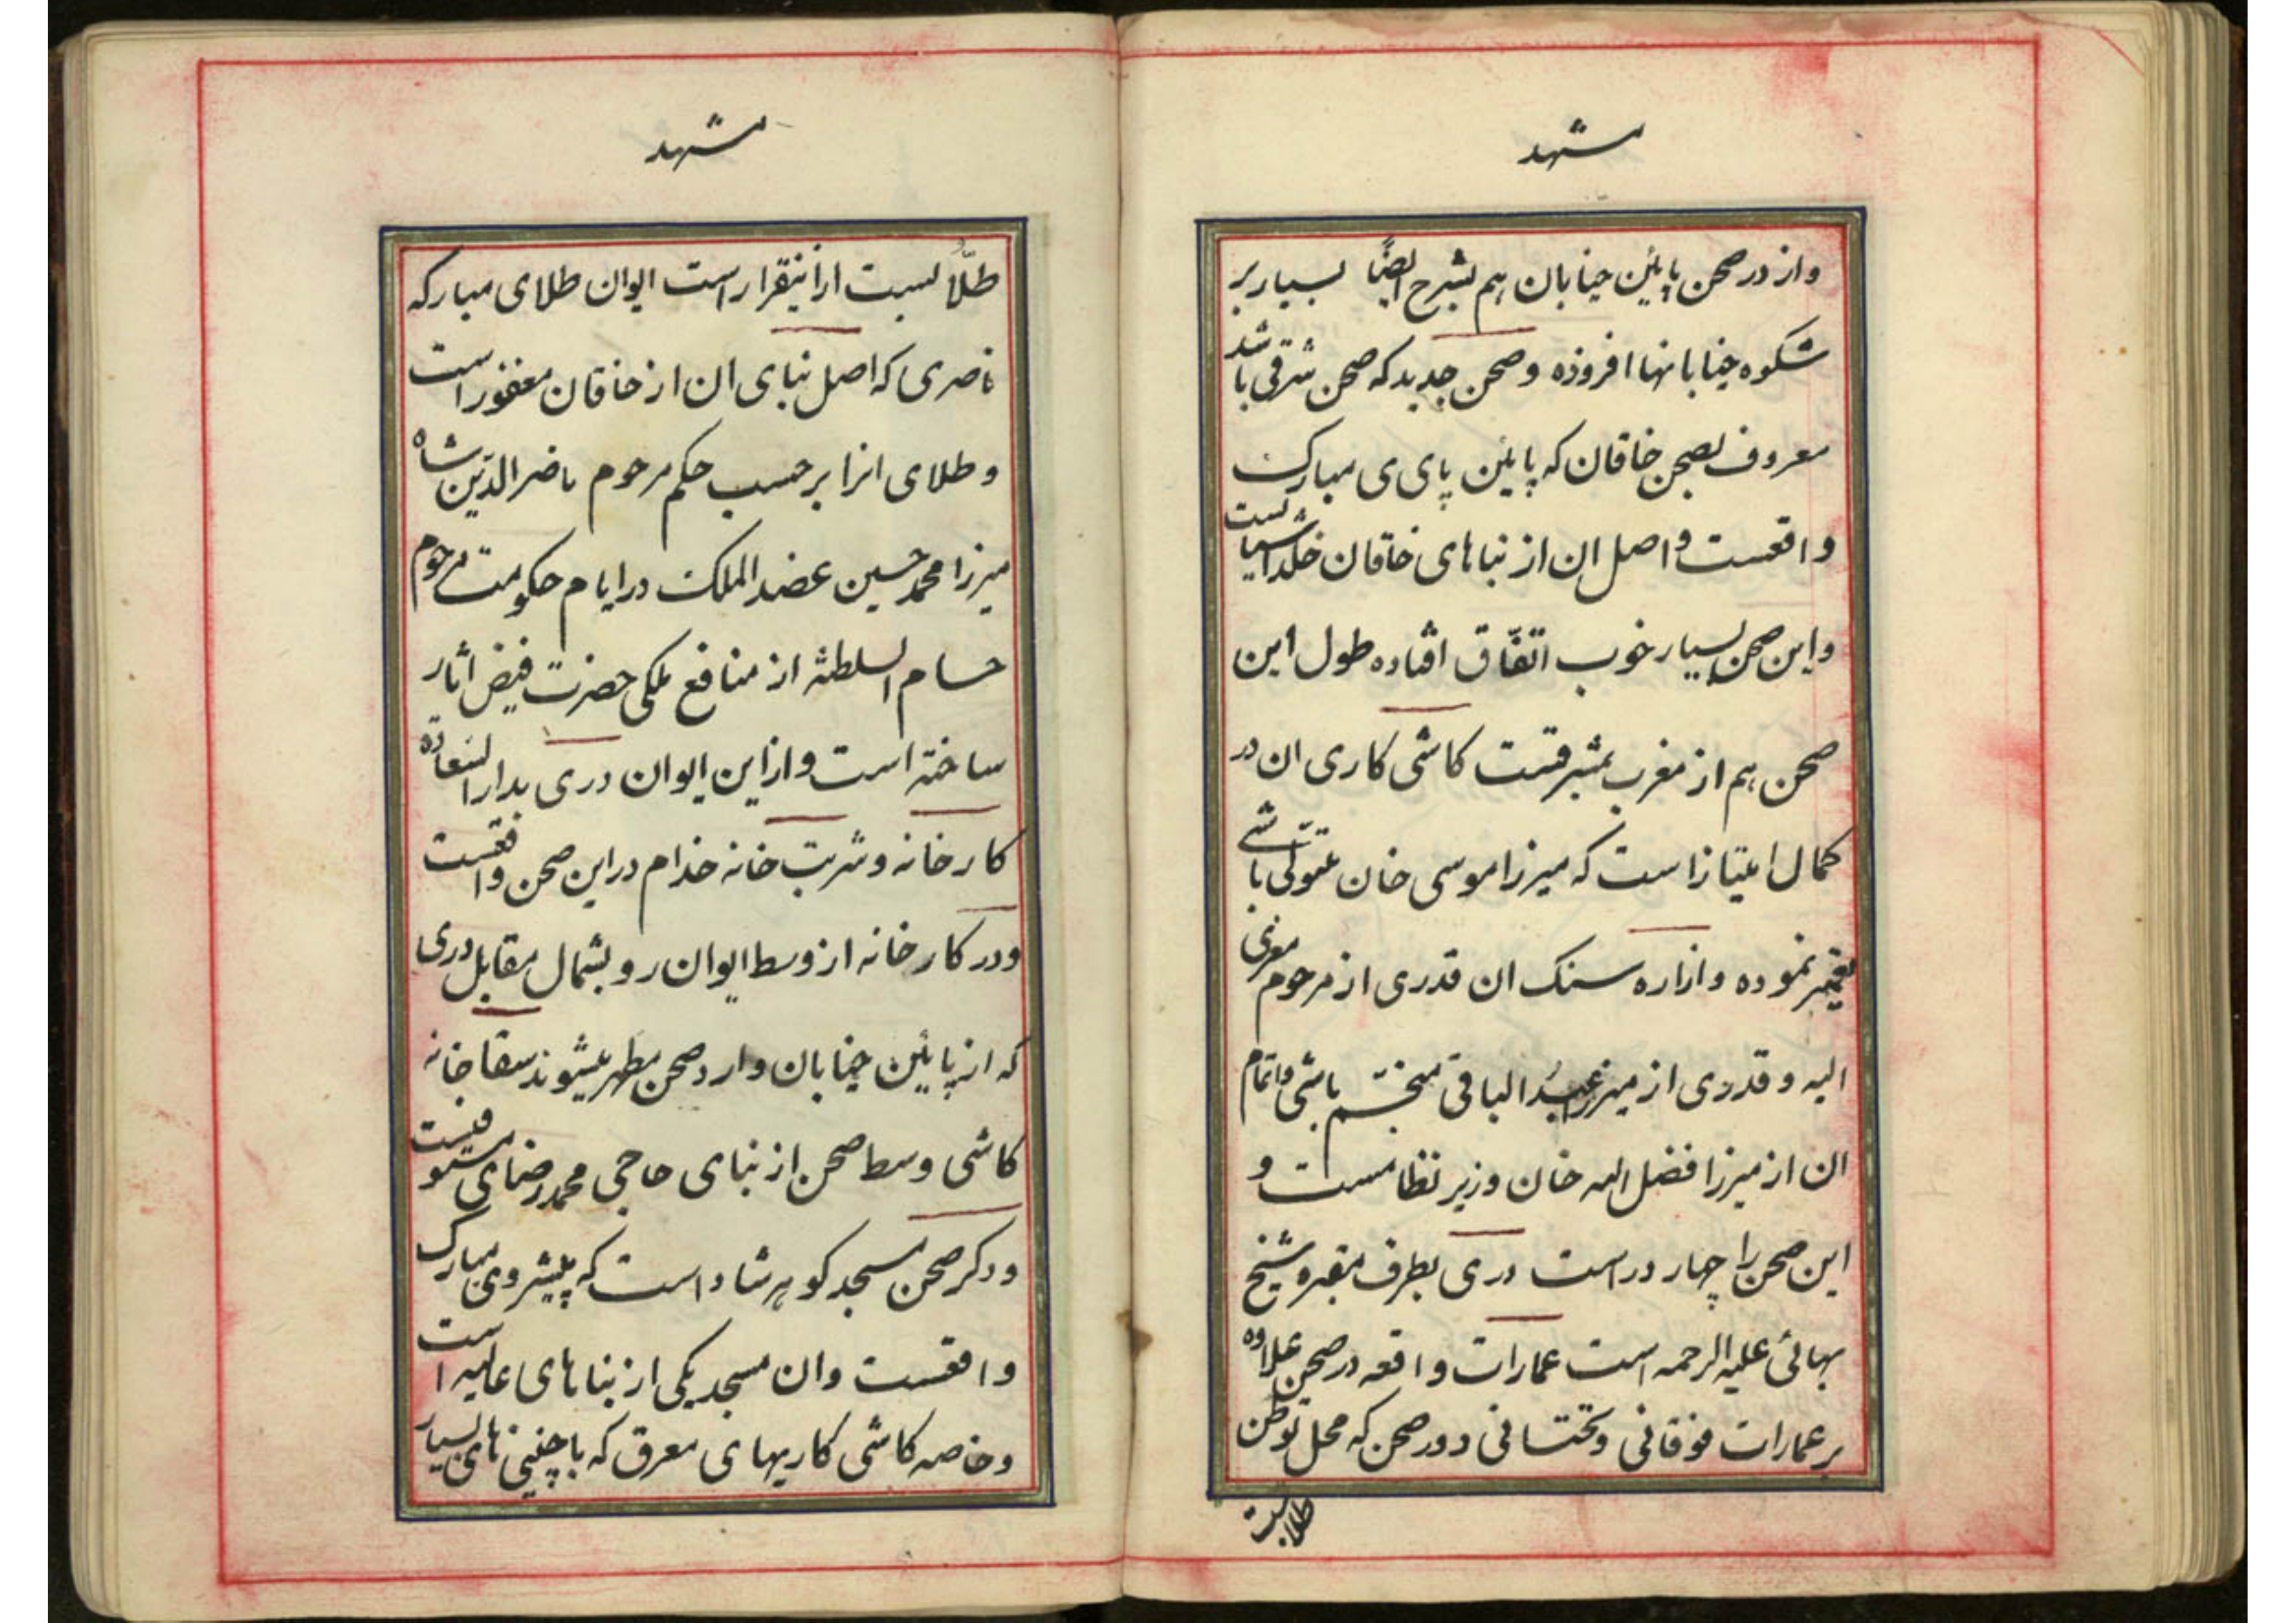 مشهد
واز در صحن پایین خیابان هم بشرح ایضاً بسیار بر
شکوه خیابانها افزوده و صحن جدید که صحن شرقی باشد
معروف بصحن خاقان که پایین پای ی مبارک
واقعست و اصل ان از بناهای خاقان خلد اشیانست
واین صحن بسیار خوب اتفّاق افتاده طول این
صحن هم از مغرب بمشرقست کاشی کاری ان در
کمال امتیاز است که میرزا موسی خان متولّی باشی
تعمیر نموده وازاره سنک ان قدری از مرحوم معزی
الیه و قدری از میرزا عبدُ الباقی منجّم باشی واتمام
ان از میرزا فضل الله خان وزیر نظامست و
این صحن را چهار در است دری بطرف مقبره شیخ
بهائی علیه الرحمه است عمارات واقعه در صحن علاوه
بر عمارات فوقانی وتحتانی دور صحن که محل توطن
طلابست
مشهد
طلّابست از اینقرار است ایوان طلای مبارکه
ناصری که اصل بنای ان از خاقان مغفور است
و طلای انرا بر حسب حکم مرحوم ناصر الدّین شاه
میرزا محمد حسین عضد الملک در ایام حکومت مرحوم
حسام السلطنه از منافع ملکی حضرت فیض اثار
ساخته است واز این ایوان دری بدار السّعاده
کارخانه و شربت خانه خدام در این صحن واقعست
ودر کارخانه از وسط ایوان رو بشمال مقابل دری
که از پایین خیابان وارد صحن مطهر میشوند سقا خانه
کاشی وسط صحن از بنای حاجی محمد رضای
ودکر صحن مسجد کوهرشاد است که پیشروی مبارک
واقعست وان مسجد یکی از بناهای عالیه است
وخاصه کاشی کاریهای معرق که با چینی های بسیار